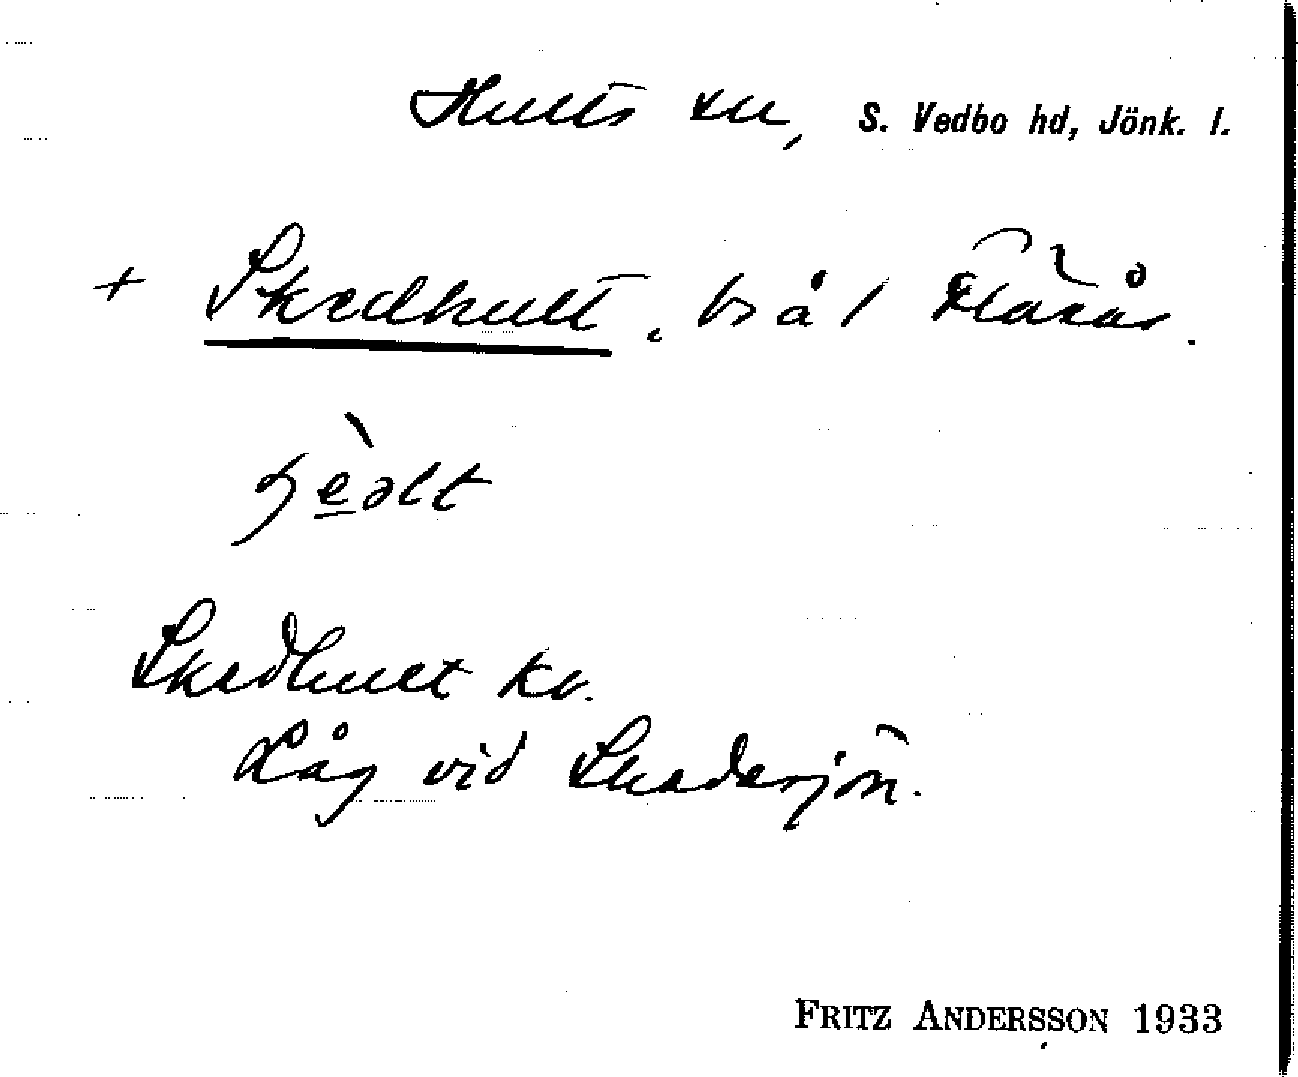 Hults sn, S. Vedbo hd, Jönk. l.
+ Skedhult, bs å / Flasås.
Skedhult kv.
Låg vid Skedesjön.
FRITZ ANDERSSON 1933